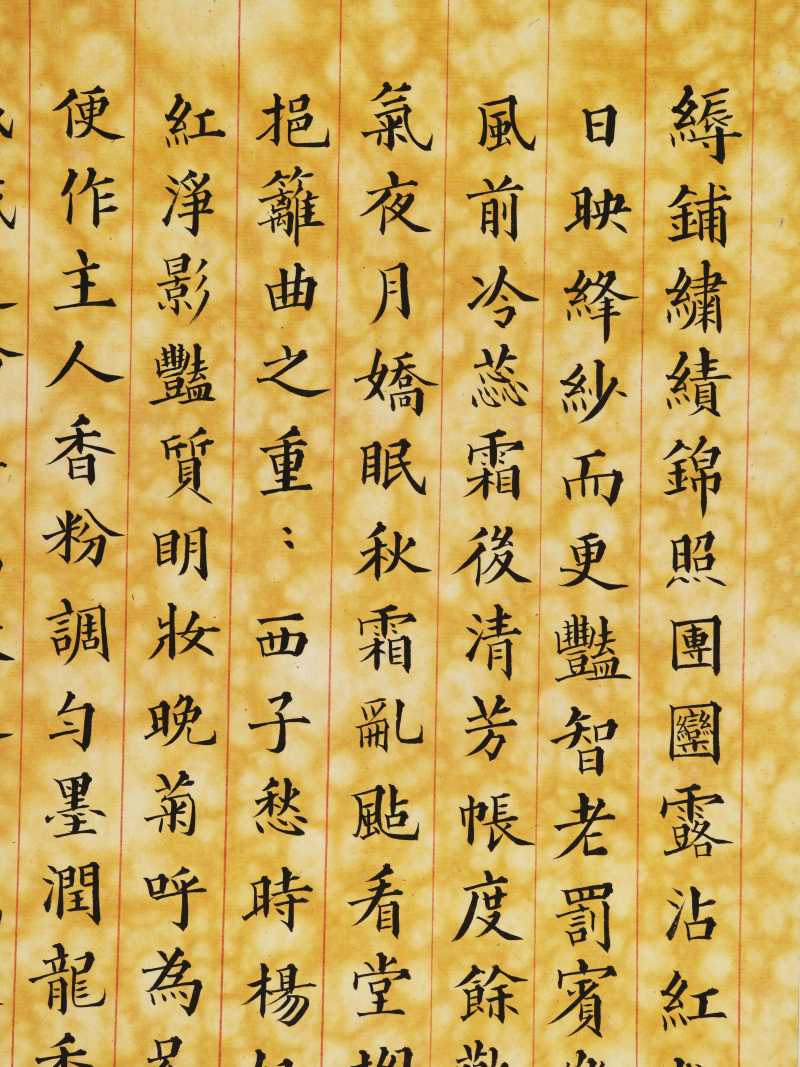 縟鋪繡績錦照團圞露沾紅
日映絳紗而更豔智老罰賓
風前冷蕊霜後清芳帳度餘
氣夜月嬌眠秋霜亂颭看堂
挹籬曲之重：西子愁時楊
紅淨影豔質明妝晚菊呼為
便作主人香粉調勻墨潤龍